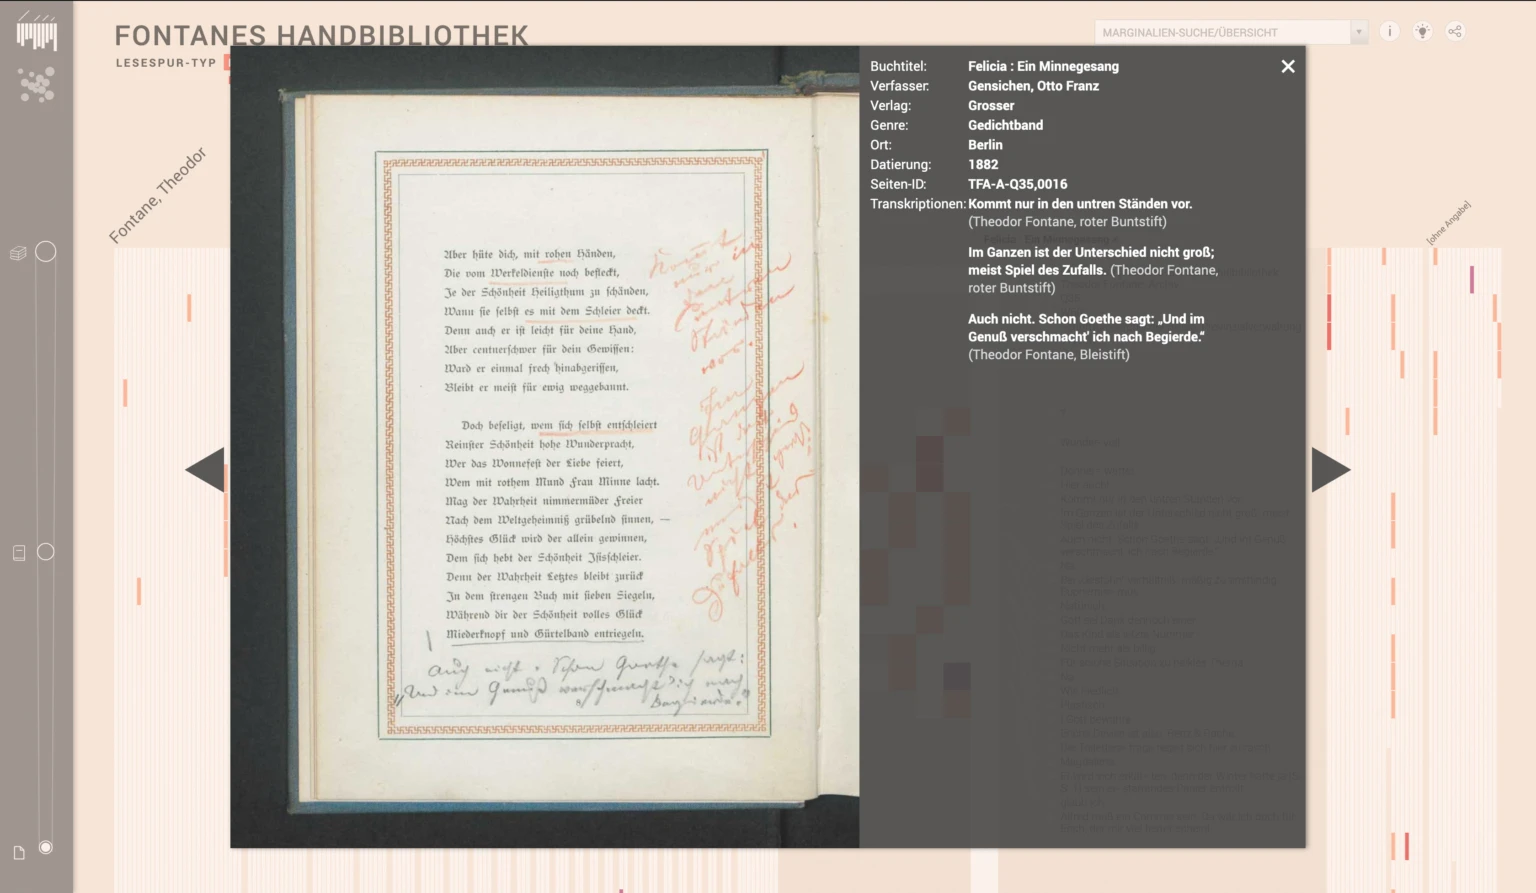 FONTANES HANDBIBLIOTHEK
LESESPUR-TYP
MARGINALIEN-SUCHE/ÜBERSICHT
Fontane, Theodor
[ohne Angabe]
Buchtitel: Felicia : Ein Minnegesang
Verfasser: Gensichen, Otto Franz
Verlag: Grosser
Genre: Gedichtband
Ort: Berlin
Datierung: 1882
Seiten-ID: TFA-A-Q35,0016
Transkriptionen: Kommt nur in den untren Ständen vor.
(Theodor Fontane, roter Buntstift)
Im Ganzen ist der Unterschied nicht groß;
meist Spiel des Zufalls. (Theodor Fontane,
roter Buntstift)
Auch nicht. Schon Goethe sagt: „Und im
Genuß verschmacht' ich nach Begierde.“
(Theodor Fontane, Bleistift)
Aber hüte dich, mit rohen Händen,
Die vom Werkeldienste noch befleckt,
Je der Schönheit Heiligthum zu schänden,
Wann sie selbst es mit dem Schleier deckt.
Denn auch er ist leicht für deine Hand,
Aber centnerschwer für dein Gewissen:
Ward er einmal frech hinabgerissen,
Bleibt er meist für ewig weggebannt.
Doch beseligt, wem sich selbst entschleiert
Reinster Schönheit hohe Wunderpracht,
Wer das Wonnefest der Liebe feiert,
Wem mit rothem Mund Frau Minne lacht.
Mag der Wahrheit nimmermüder Freier
Nach dem Weltgeheimniß grübelnd sinnen, —
Höchstes Glück wird der allein gewinnen,
Dem sich hebt der Schönheit Isisschleier.
Denn der Wahrheit Letztes bleibt zurück
In dem strengen Buch mit sieben Siegeln,
Während dir der Schönheit volles Glück
Miederknopf und Gürtelband entriegeln.
Kommt
nur in
den
untren
Ständen
vor.
Im
Ganzen
ist der
Unterschied
nicht groß;
meist
Spiel des
Zufalls.
Auch nicht. Schon Goethe sagt:
„Und im Genuß verschmacht' ich nach
Begierde.“